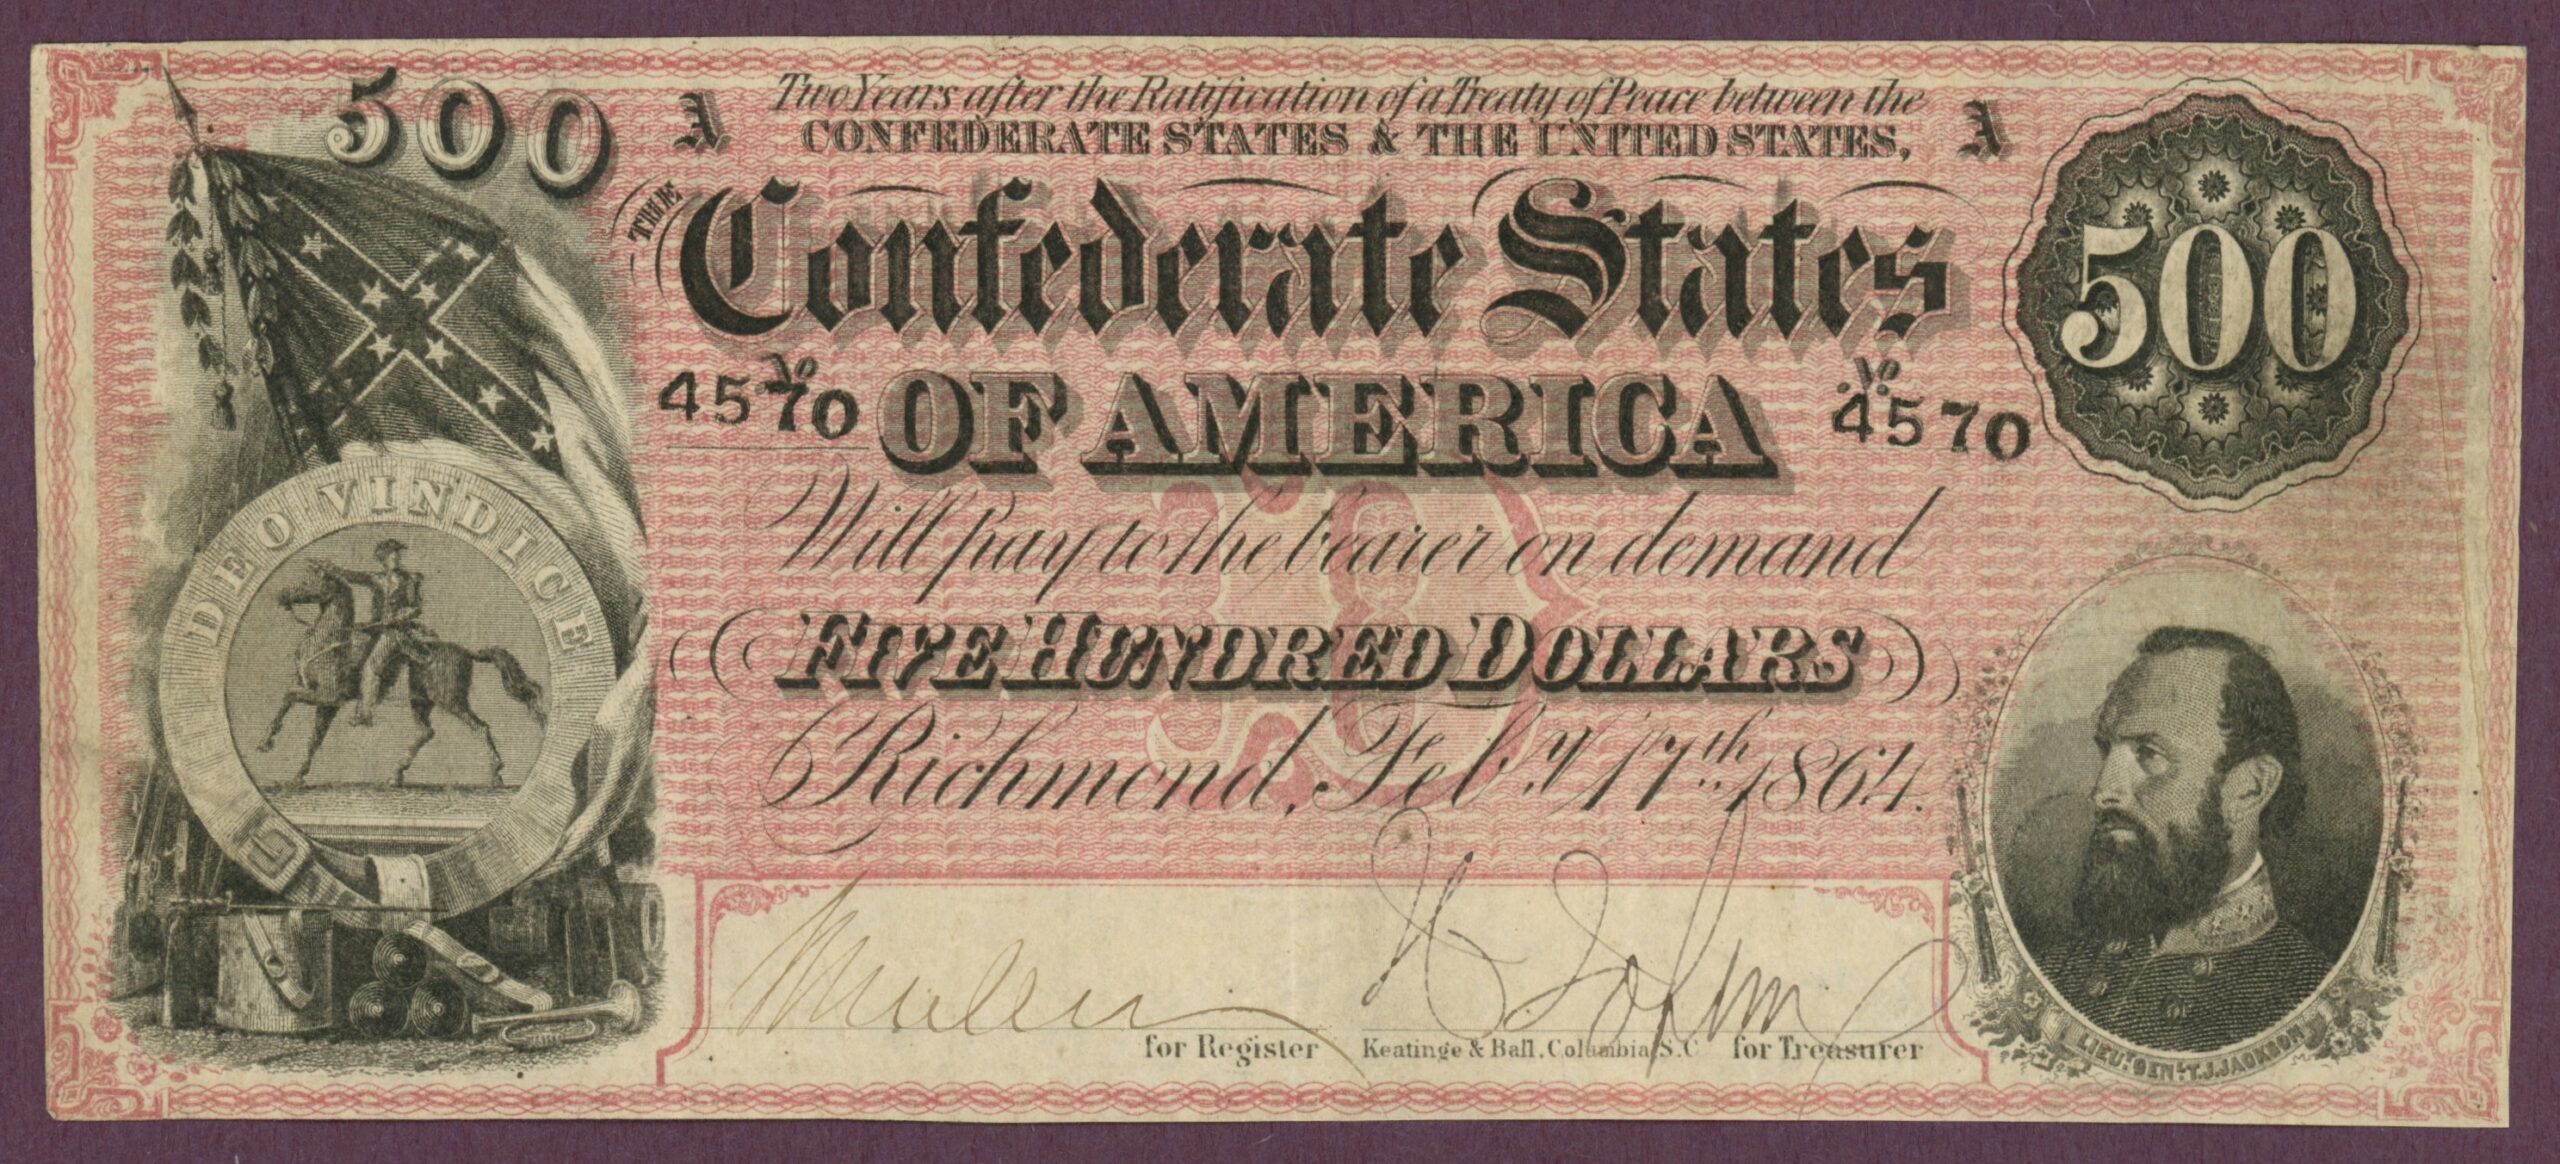 500 A Two Years after the Ratification of a Treaty of Peace between the A
CONFEDERATE STATES & THE UNITED STATES,
THE Confederate States 500
No 4570 OF AMERICA No 4570
Will pay to the bearer on demand
FIVE HUNDRED DOLLARS
Richmond, Feby. 17th, 1864.
DEO VINDICE
for Register Keatinge & Ball, Columbia, S.C. for Treasurer
LIEUT. GENL. T.J. JACKSON